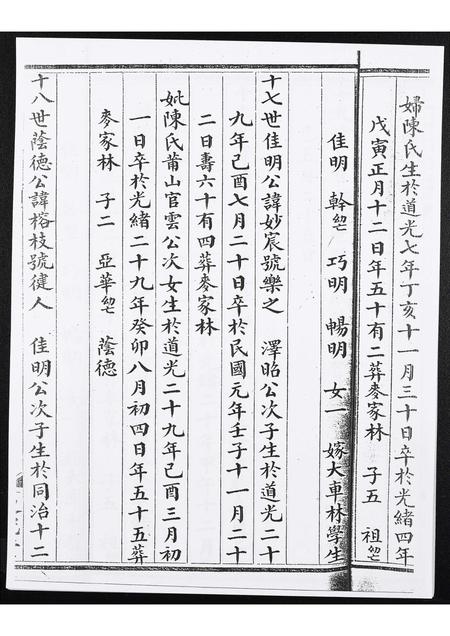 婦陳氏生於道光七年丁亥十一月三十日卒於光緒四年
戊寅正月十二日年五十有二葬麥家林 子五 祖𡚒
佳明 幹𡚒 巧明 暢明 女一 嫁大車林學生
十七世佳明公諱妙宸號樂之 澤昭公次子生於道光二十
九年己酉七月二十日卒於民國元年壬子十一月二十
二日壽六十有四葬麥家林
妣陳氏莆山官雲公次女生於道光二十九年己酉三月初
一日卒於光緒二十九年癸卯八月初四日年五十五葬
麥家林 子二 亞華 蔭德
十八世蔭德公諱榕枝號健人 佳明公次子生於同治十二